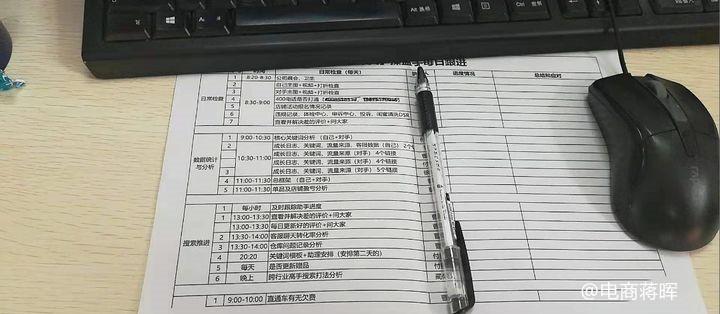 每日跟进
时间 日常检查（每天） 进度情况 总结和应对
日常检查
1 8:20-8:30 公司晨会、卫生
2 8:30-9:00 自己主图+视频+打折检查
3 对手主图+视频+打折检查
4 400电话是否打通
5 店铺活动报名情况记录
6 违规记录、体检中心、申诉中心、投诉、闲置清洗
7 查看并解决差的评价+问大家
数据统计与分析
1 9:00-10:30 核心关键词分析 （自己+对手）
2 10:30-11:00 成长日志、关键词、流量来源、客服数据（自己）
成长日志、关键词、流量来源（对手）4个链接
成长日志、关键词、流量来源（对手）4个链接
3 成长日志、关键词、流量来源（对手）5个链接
4 11:00-11:30 总框架 （自己+对手）
5 11:00-11:30 单品及店铺盈亏分析
搜索推进
1 每小时 及时跟踪助手进度
1 13:00-13:30 查看并解决差的评价+问大家
13:00-13:30 每日更新好的评价+问大家
2 13:30-14:00 客服聊天转化率分析
3 13:30-14:00 仓库问题记录分析
4 20:20 关键词模板+助理安排（安排第二天的）
5 每天 是否更新赠品
6 晚上 跨行业高手搜索打法分析
1 9:00-10:00 直通车有无欠费
Alt
Ctrl
@电商蒋晖